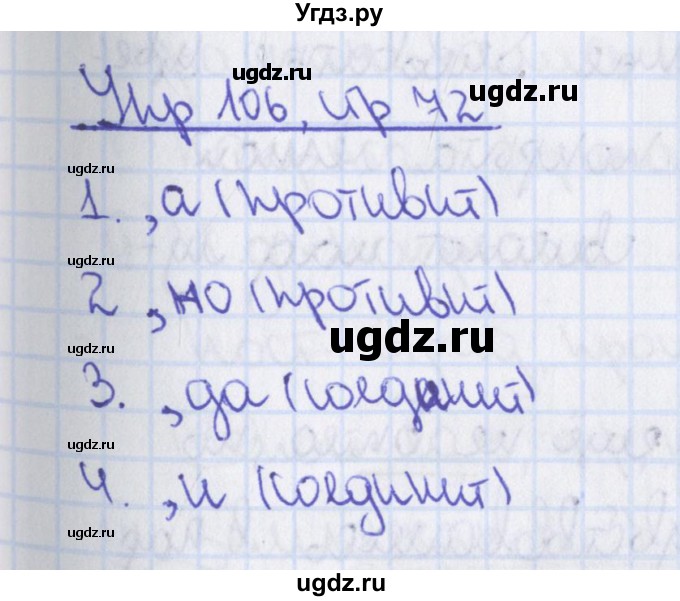 Угдз.ру
ugdz.ru
Упр 106, стр 72
ugdz.ru
ugdz.ru
1. , а (противит)
ugdz.ru
2 , но (противит)
ugdz.ru
ugdz.ru
3. , да (соединит)
ugdz.ru
4. , и (соединит)
ugdz.ru
ugdz.ru